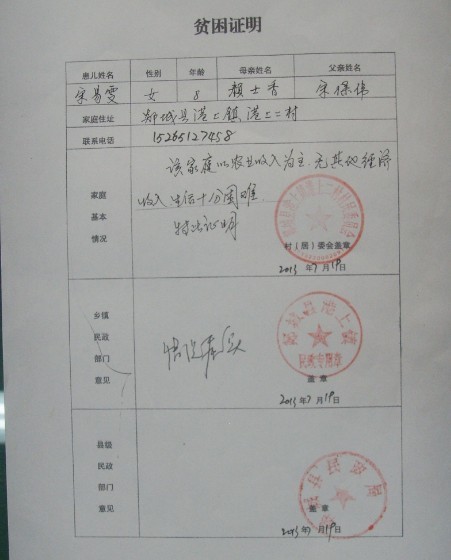 贫困证明
患儿姓名 性别 年龄 母亲姓名 父亲姓名
宋易雯 女 8 赖士香 宋保伟
家庭住址 郯城县港上镇港上二村
联系电话 15265127458
家庭基本情况
该家庭以农业收入为主,无其他经济
收入 生活十分困难.
特此证明
村(居)委会盖章
2013年7月19日
乡镇民政部门意见
情况属实
郯城县港上镇
民政专用章
盖章
2013年7月19日
县级民政部门意见
城县民政局
盖章
2013年7月19日